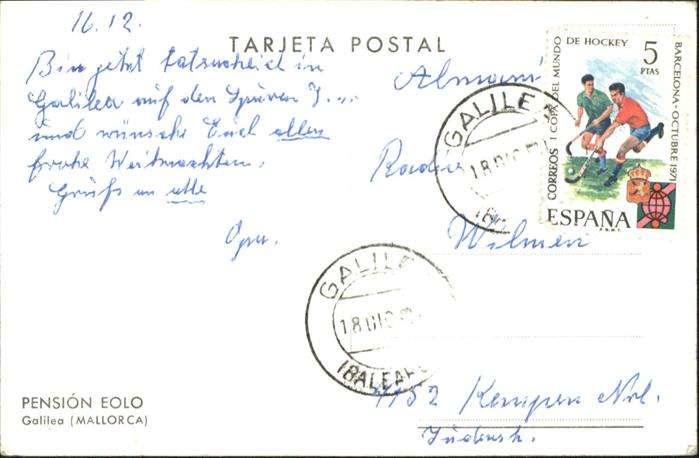 16.12.
TARJETA POSTAL
Bin jetzt tatsächlich in
Galilea auf den Spuren J...
und wünsche Euch allen
frohe Weihnachten.
Gruß an alle
Opa.
Wilmen
4152 Kempen Nrh.
CORREOS
I COPA DEL MUNDO
DE HOCKEY
BARCELONA - OCTUBRE 1971
5
PTAS
ESPAÑA
F.N.M.T.
GALILEA
18 DIC
GALILEA
18 DIC
(BALEARES
PENSIÓN EOLO
Galilea (MALLORCA)